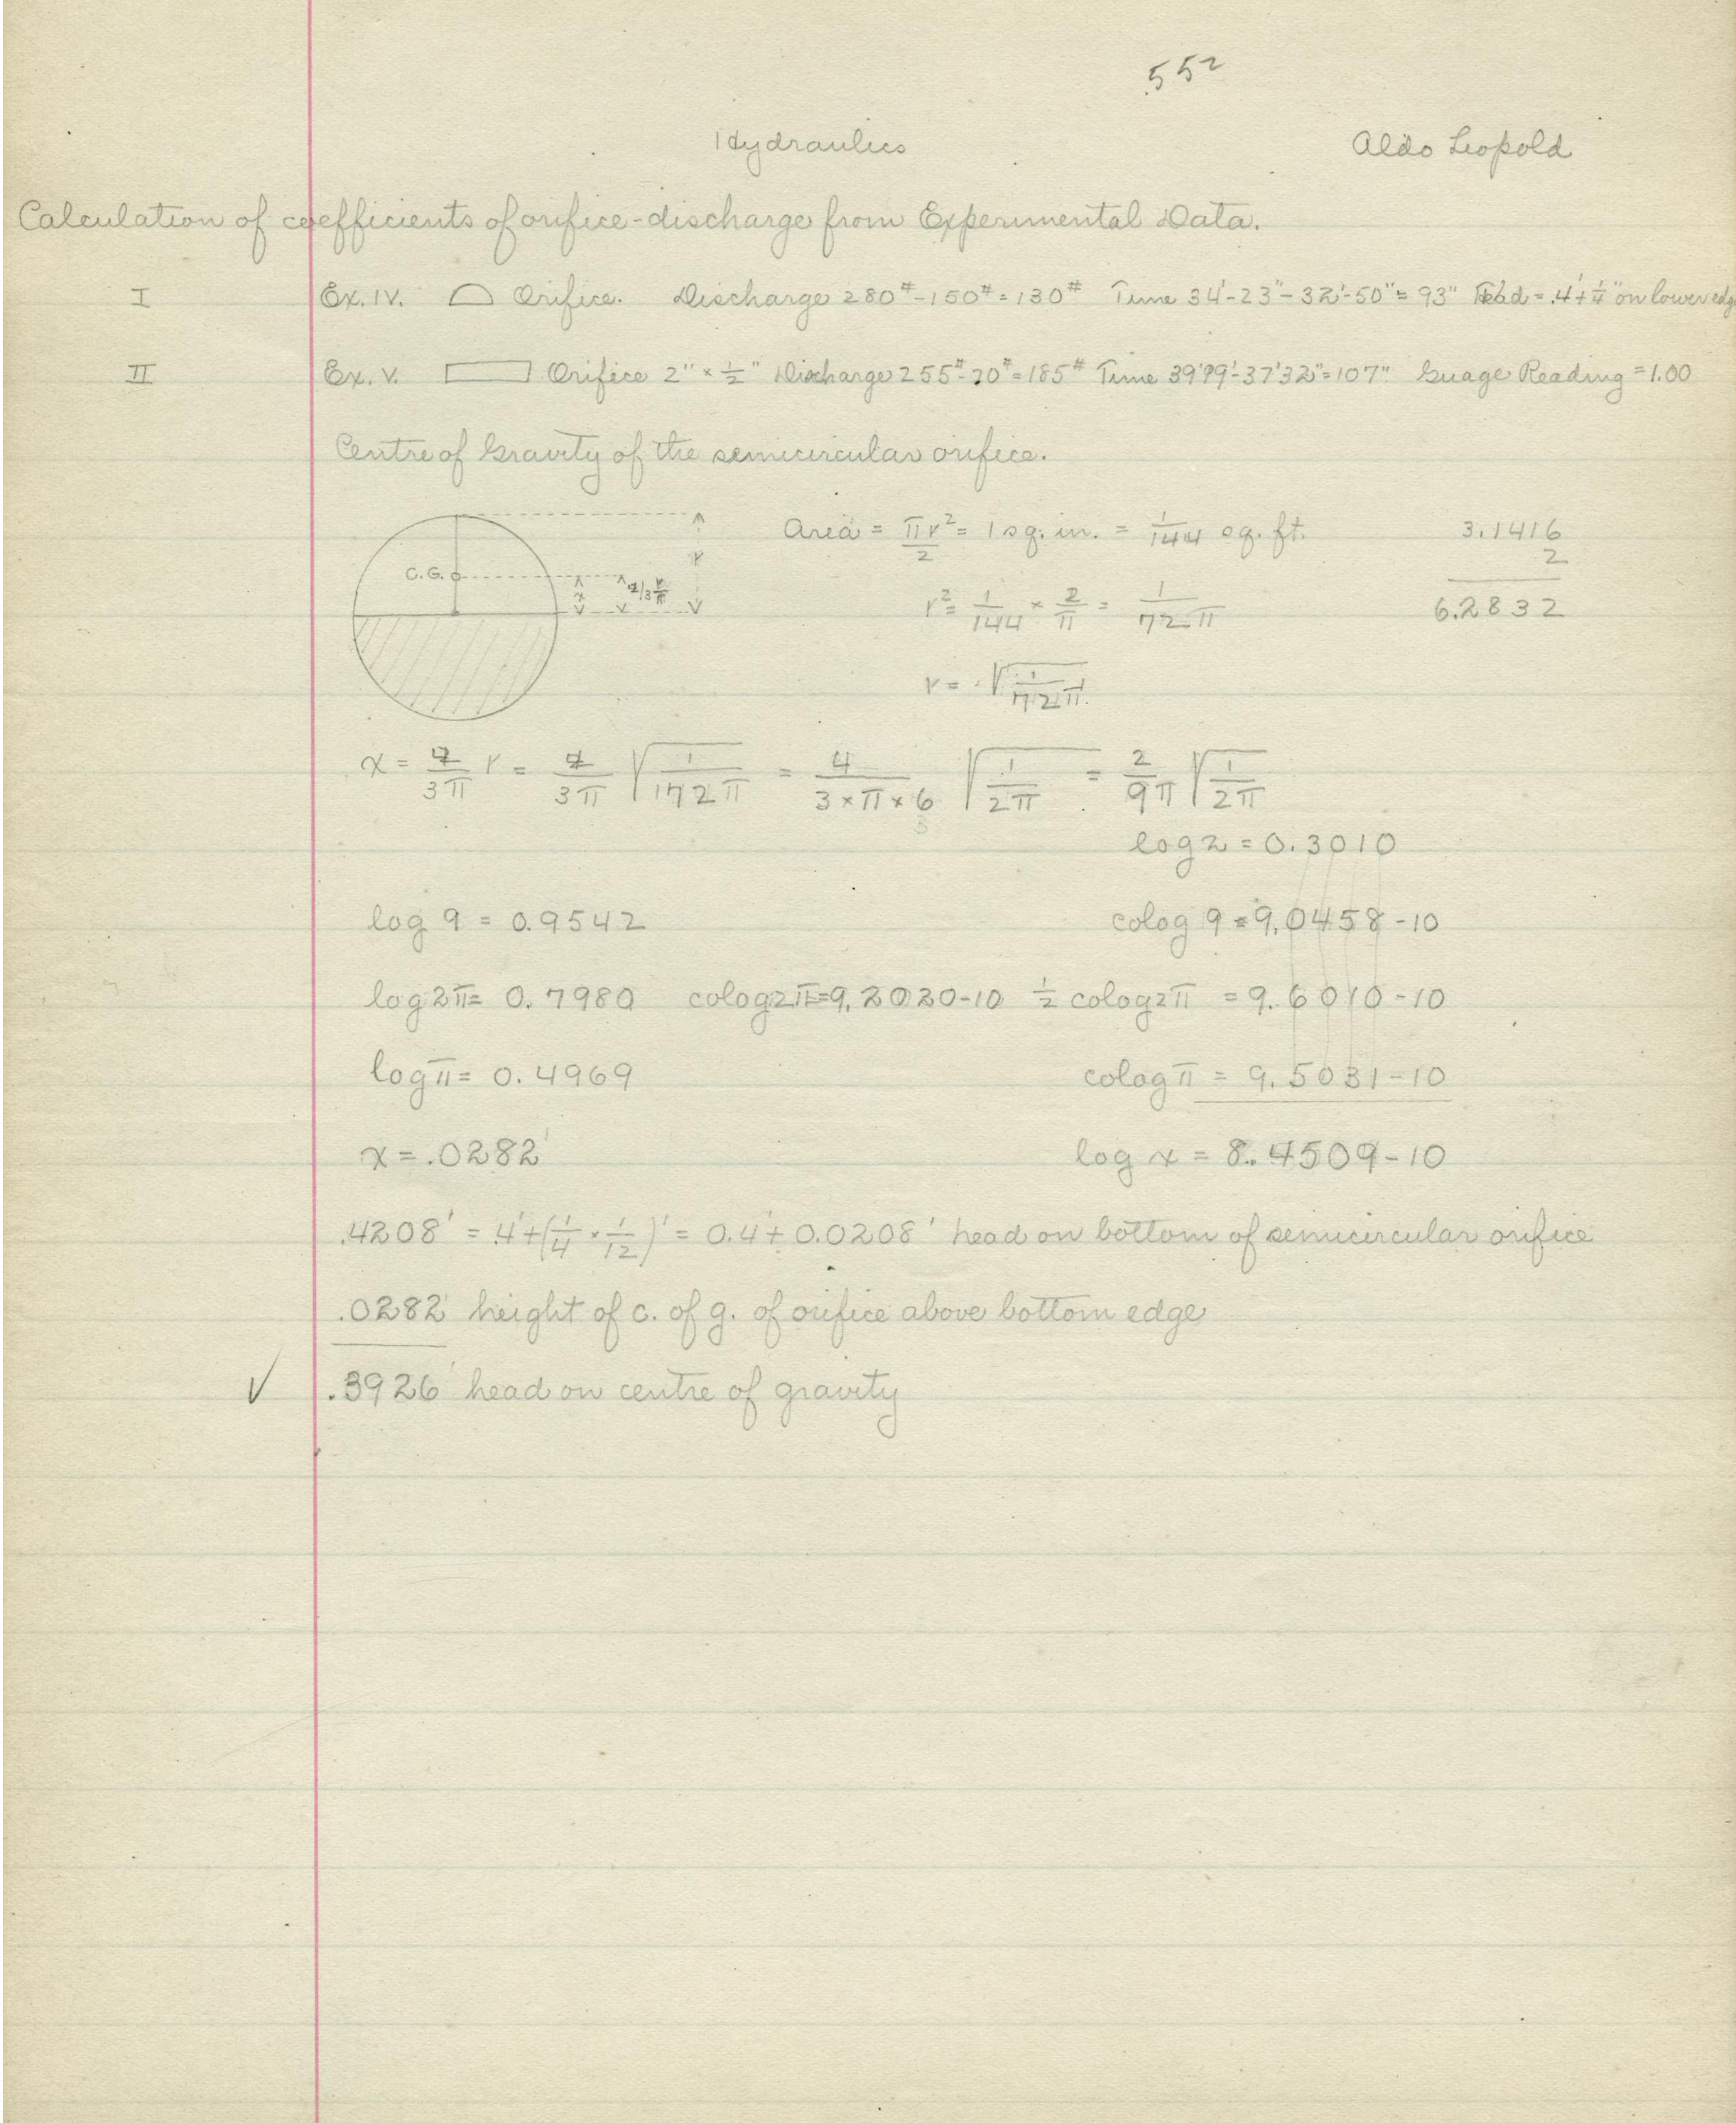 552
Hydraulics Aldo Leopold
Calculation of coefficients of orifice-discharge from Experimental Data.
I Ex. IV. Orifice. Discharge 280# - 150# = 130# Time 34'-23" - 32'-50" = 93" Head = .4'+¼" on lower edge
II Ex. V. Orifice 2" × ½" Discharge 255# - 70# = 185# Time 39'19" - 37'32" = 107" Guage Reading = 1.00
Centre of Gravity of the semicircular orifice.
Area = πr²/2 = 1 sq. in. = 1/144 sq. ft. 3.1416
2
C.G. r 4/3 r/π
r² = 1/144 × 2/π = 1/72π 6.2832
r = √1/72π
x = 4/3π r = 4/3π √1/72π = 4/3×π×6 √1/2π = 2/9π √1/2π
log 2 = 0.3010
log 9 = 0.9542 colog 9 = 9.0458-10
log 2π = 0.7980 colog 2π = 9.2020-10 ½ colog 2π = 9.6010-10
log π = 0.4969 colog π = 9.5031-10
x = .0282' log x = 8.4509-10
.4208' = .4'+(1/4 × 1/12)' = 0.4 + 0.0208' head on bottom of semicircular orifice
.0282' height of c. of g. of orifice above bottom edge
√ .3926' head on centre of gravity